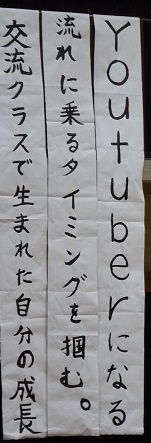 Youtuberになる
流れに乗るタイミングを掴む。
交流クラスで生まれた自分の成長